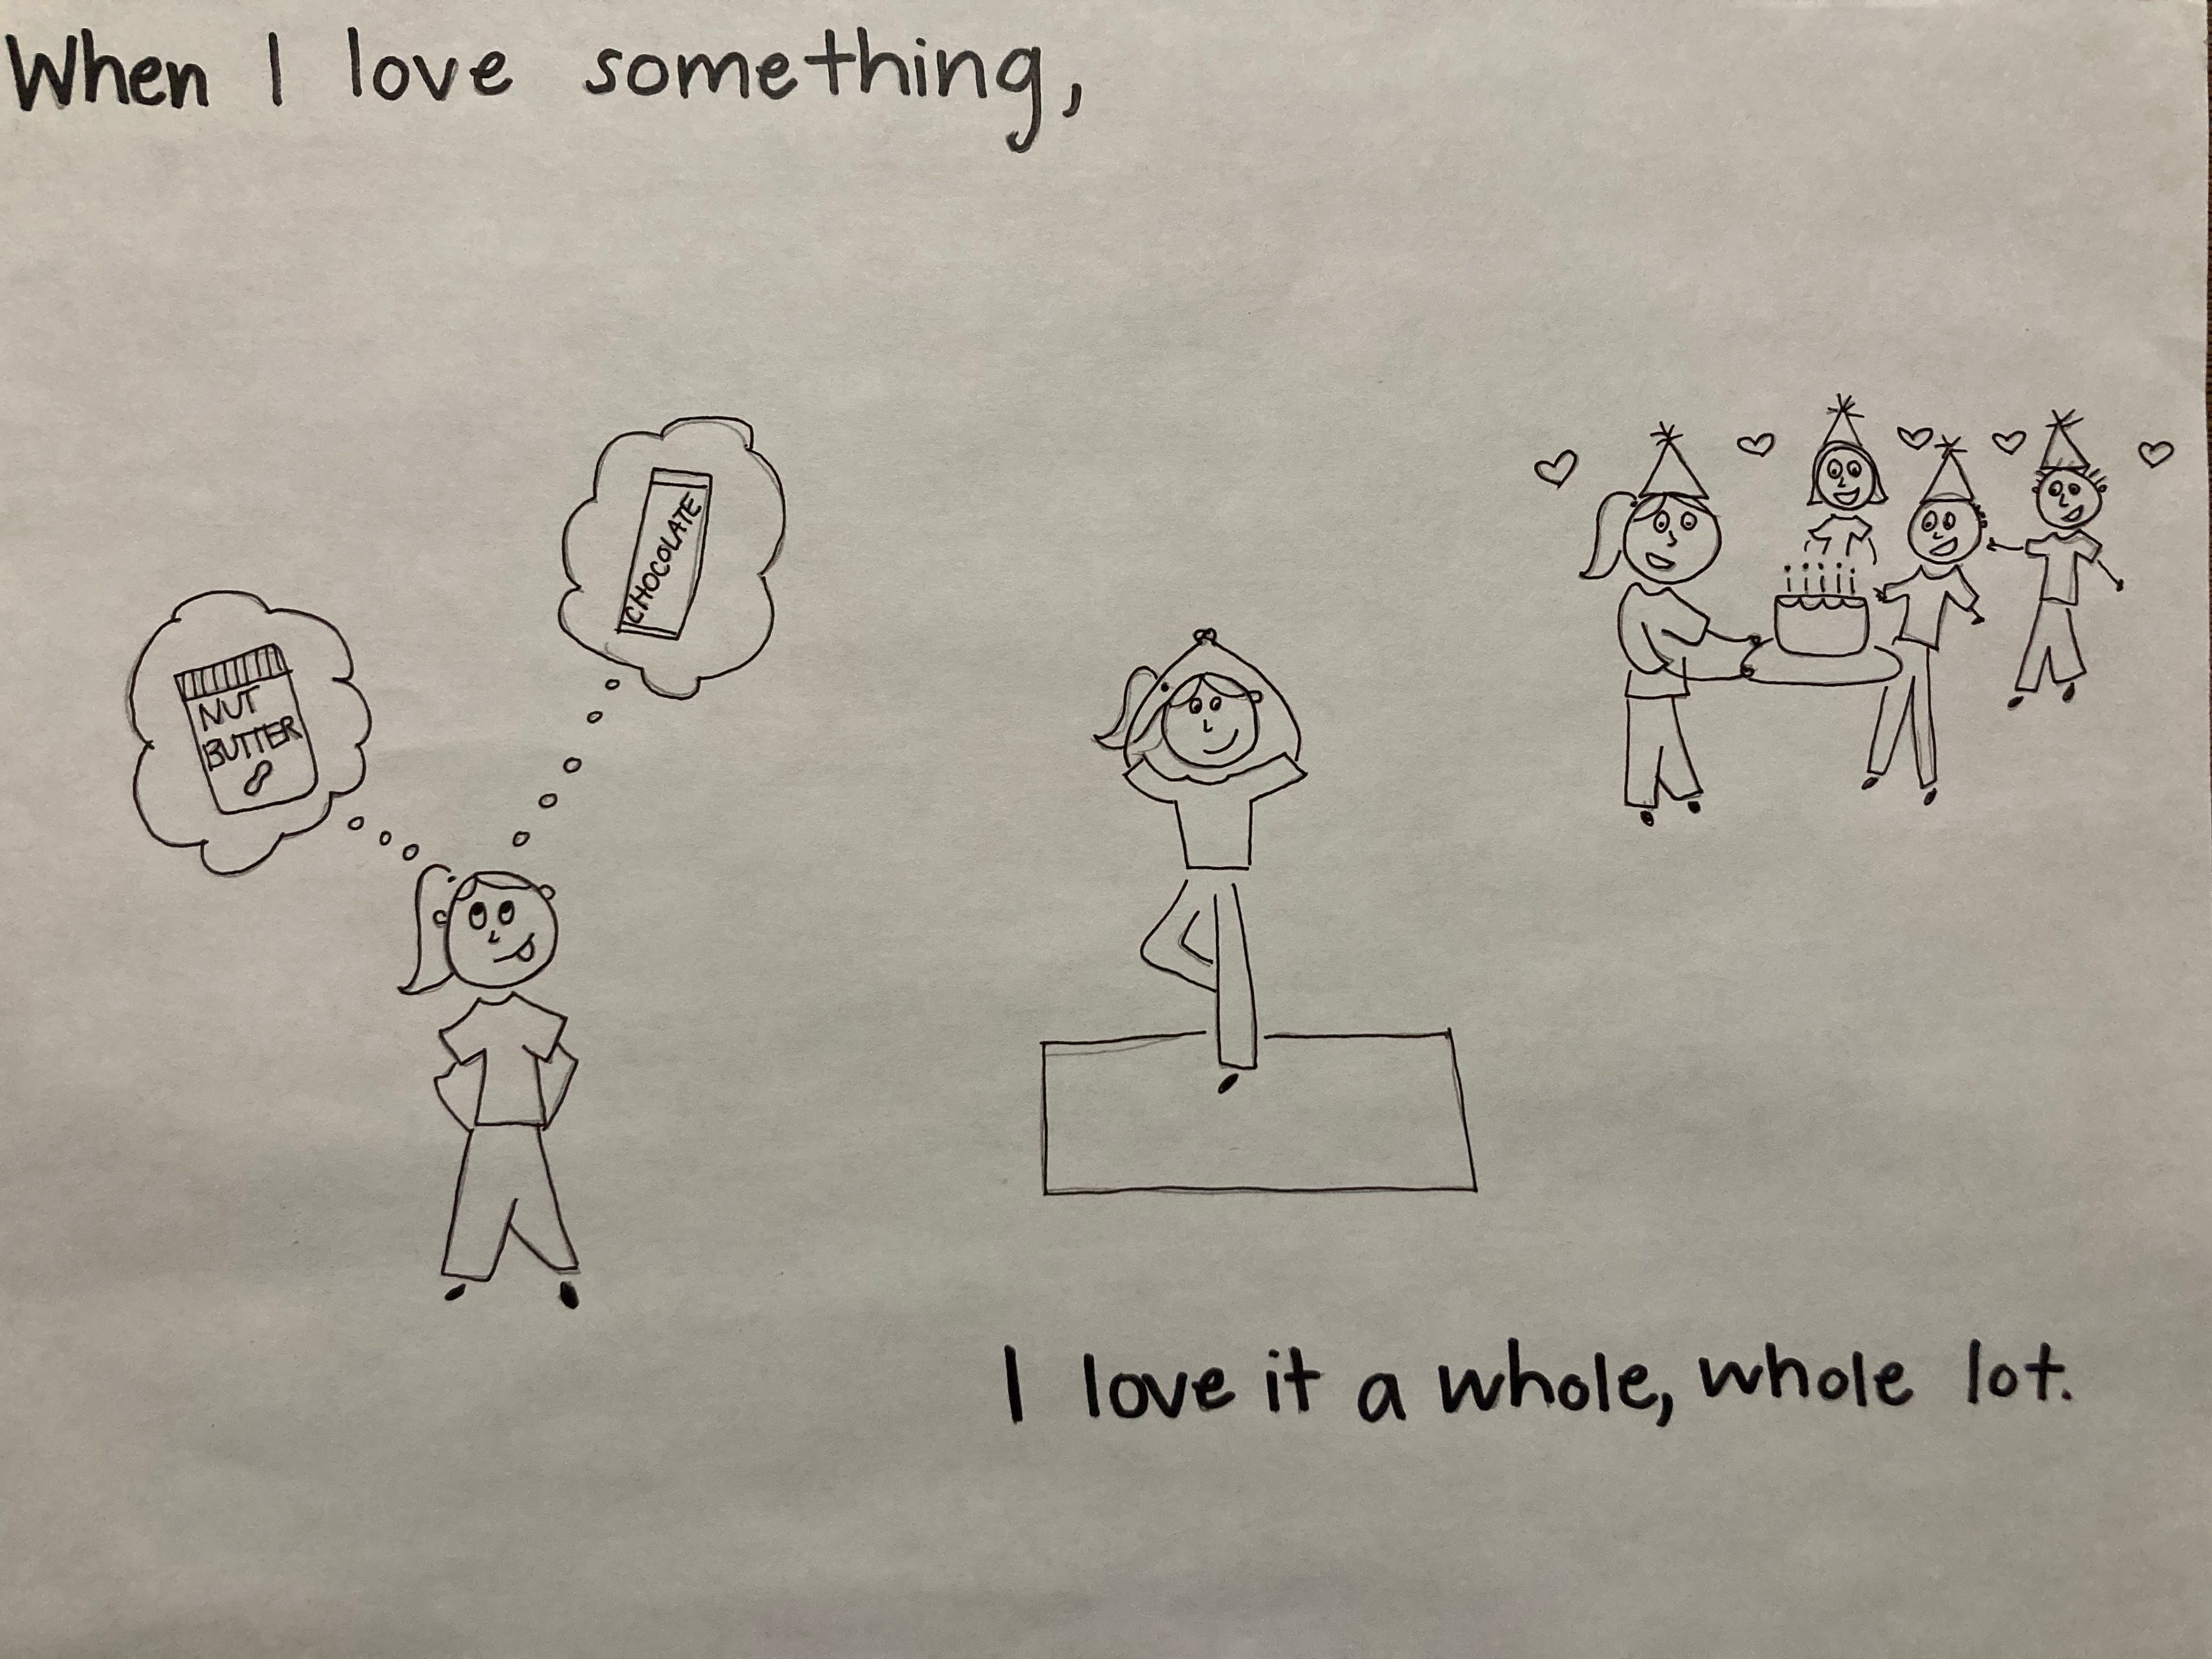 When I love something,
CHOCOLATE
NUT
BUTTER
I love it a whole, whole lot.